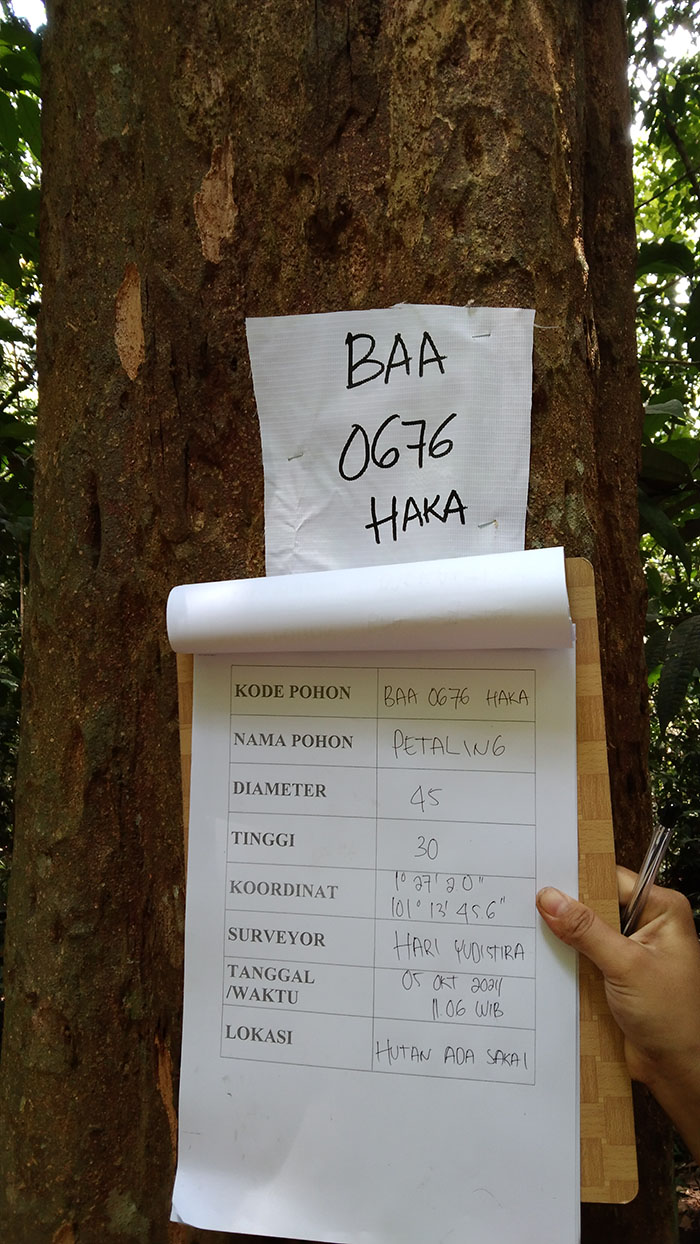 BAA
0676
HAKA
KODE POHON BAA 0676 HAKA
NAMA POHON PETALING
DIAMETER 45
TINGGI 30
KOORDINAT 1° 27' 2.0"
101° 13' 45.6"
SURVEYOR HARI YUDISTIRA
TANGGAL 05 OKT 2024
/WAKTU 11.06 WIB
LOKASI HUTAN ADA SAKAI